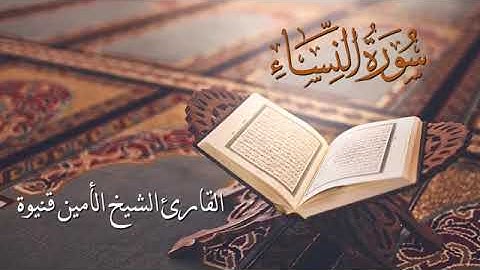 سُورَةُ النِّسَاءِ
القارئ الشيخ الأمين قنيوة